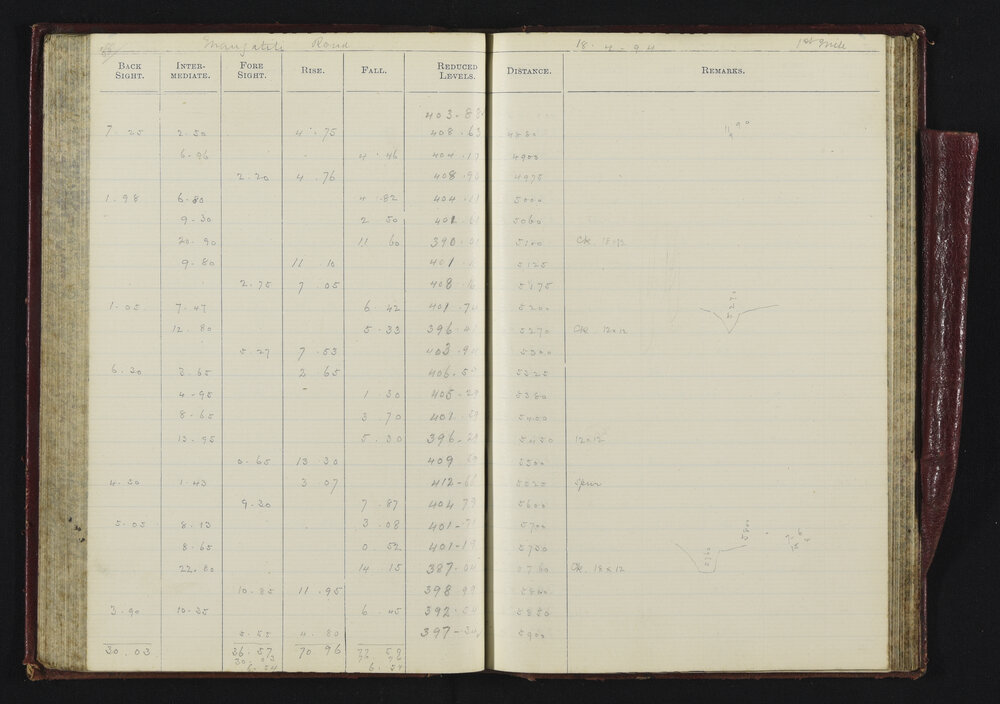 Road 18-4-94 1st Mile
BACK SIGHT. INTER-MEDIATE. FORE SIGHT. RISE. FALL. REDUCED LEVELS. DISTANCE. REMARKS.
403.88
7.25 2.50 4.75 408.63 4880
6.96 4.46 404.17 4900
2.20 4.76 408.93 4975
1.98 6.80 4.82 404.11 5000
9.30 2.50 401.61 5060
20.90 11.60 390.01 5100 Ck. 18x12
9.80 11.10 401.11 5125
2.75 7.05 408.16 5175
1.05 7.47 6.42 401.74 5200
12.80 5.33 396.41 5270 Ck. 12x12
5270
5.27 7.53 403.94 5300
6.30 3.65 2.65 406.59 5325
4.95 - 1.30 405.29 5380
8.65 3.70 401.59 5400
13.95 5.30 396-29 5450 12x12
0.65 13.30 409.59 5500
4.50 1.43 3.07 412-66 5525 Spur
9-30 7.87 404.79 5600
5.05 8.13 3.08 401-71 5700
8.65 0.52 401-19 5750
22.80 14.15 387.04 5760 Ck. 18x12
5760 5800
10.85 11.95 398.99 5840
3.90 10.35 6.45 392.54 5856
5.55 4.80 397-34 5900
30.03 36.57 70.96
30.03
6.54 6.54